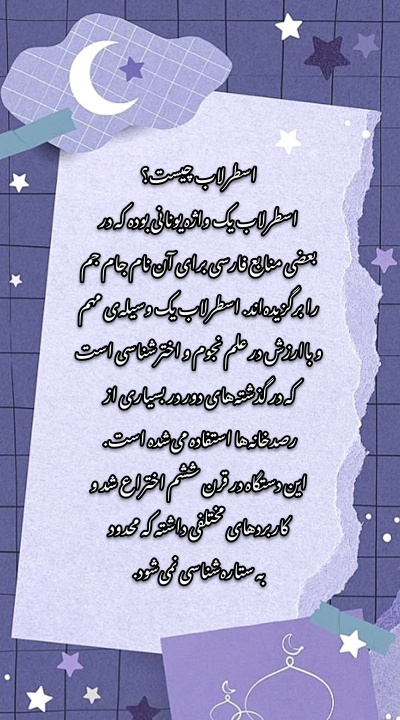 اسطرلاب چیست؟
اسطرلاب یک واژه یونانی بوده که در
بعضی منابع فارسی برای آن نام جام جم
را برگزیده‌اند. اسطرلاب یک وسیله‌ی مهم
و با ارزش در علم نجوم و اخترشناسی است
که در گذشته‌های دور در بسیاری از
رصدخانه‌ها استفاده می‌شده است.
این دستگاه در قرن ششم اختراع شد و
کاربردهای مختلفی داشته که محدود
به ستاره‌شناسی نمی‌شود.